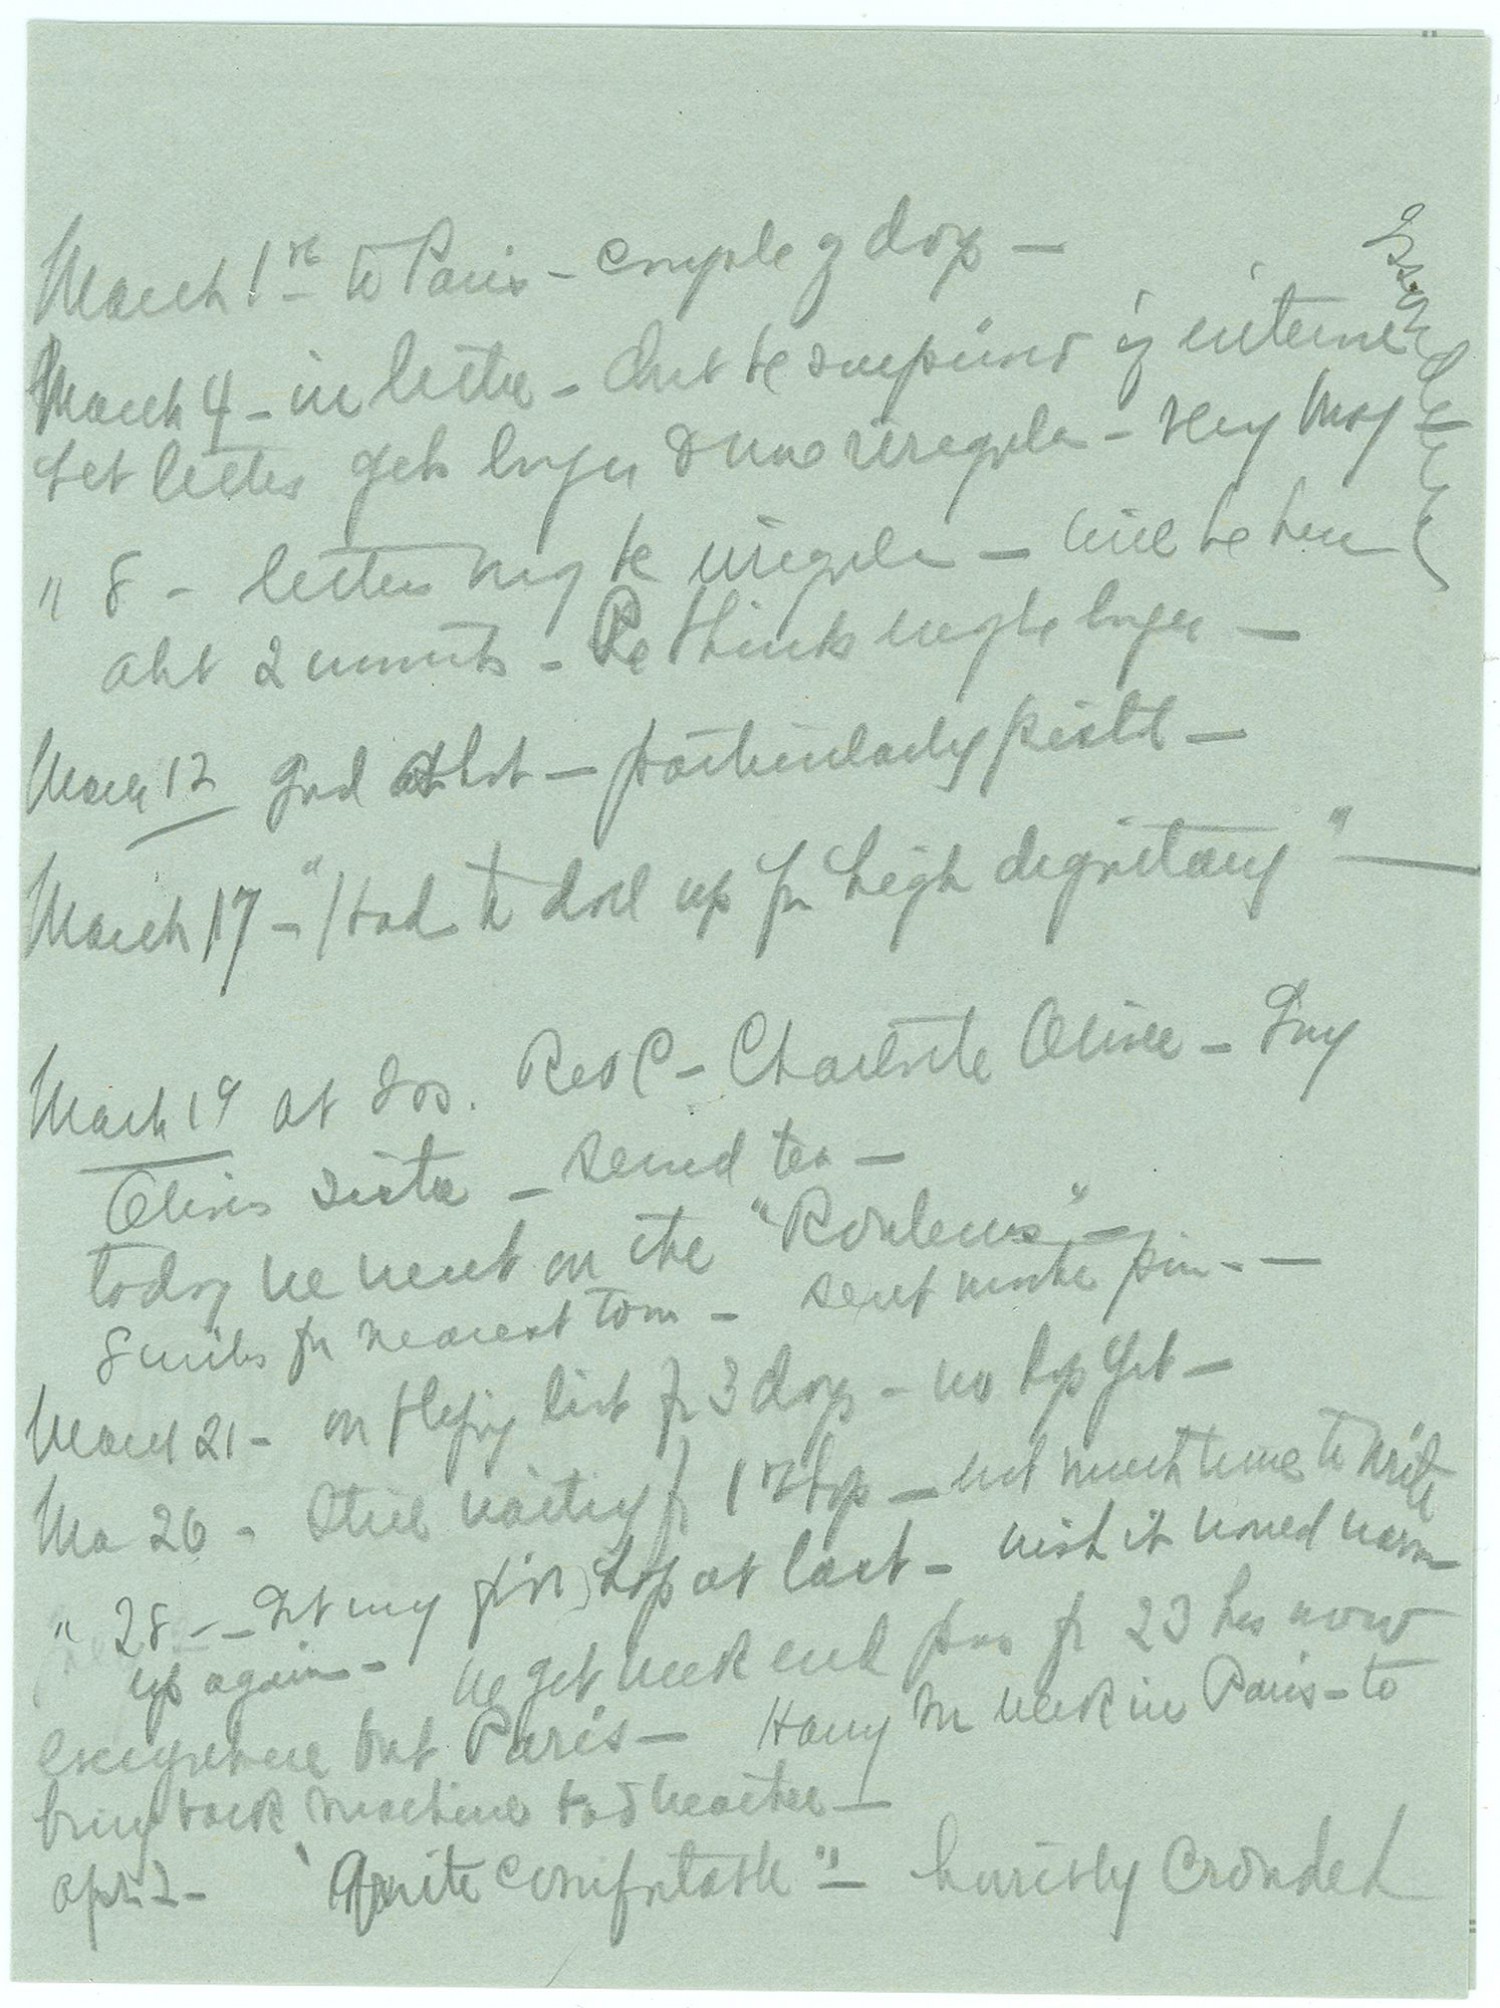 March 1st to Paris - couple of days -
March 4 - in letter - don't be surprised if
bet letters gets longer & more irregular - very
" 8 - letters may be irregular - will be here
abt 2 months - He thinks maybe longer -
March 12 good shot - particularly pistol -
March 17 - "Had to doll up for high dignitary" -
March 19 at Red C - Charlotte Oliver -
Olivers sister - served tea -
today he went on the "Rouleurs" -
8 miles fr nearest town - sent
March 21 - on flying list fr 3 days - no hop yet -
Ma 26 - Still waiting fr 1st hop - not much time to write
" 28 - - Got my first hop at last - wish it would warm
up again - we get week end pass fr 23 hrs now
everywhere but Paris - Harry M week in Paris - to
bring back machine bad weather -
Apr. 2 - "Quite comfortable" - Crowded